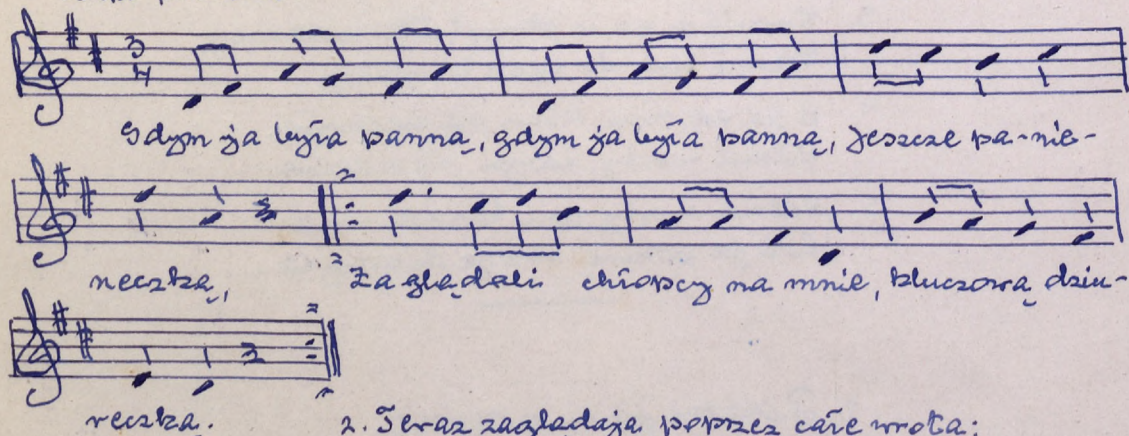 3
4
Gdym ja była panną, gdym ja była panną, jeszcze pa-nie-
neczką,
Zaglądali chłopcy na mnie, kluczową dziu-
reczką.
2. Teraz zaglądają poprzez całe wrota: